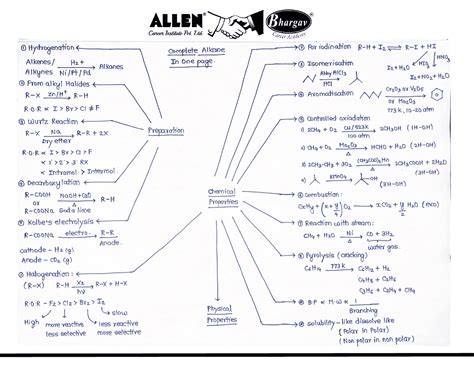 ALLEN
Career Institute Pvt. Ltd.
Bhargav
Career Academy
Complete Alkane
In one page.
① Hydrogenation
Alkenes/ H₂ + Alkanes
Alkynes Ni/Pt/Pd
② From alkyl Halides
R-X Zn/H⁺ R-H
R.O.R ∝ I > Br > Cl ≠ F
③ Wurtz Reaction
R-X Na R-R + 2X
Dry ether
R.O.R ∝ I > Br > Cl > F
∝ 1° > 2° > 3° RX
∝ Intramol > Intermol
④ Decarboxylation
R-COOH NaOH+CaO R-H
or R-COONa Soda lime
⑤ Kolbe's electrolysis
R-COONa electro. R-R
Anode.
cathode - H₂ (g)
Anode - CO₂ (g)
Halogenation :
(R-X) R-H X₂ R-X + H-X
hν
R.O.R - F₂ > Cl₂ > Br₂ > I₂
High more reactive less selective
less reactive more selective
slow
Preparation
Chemical
Properties
Physical
Properties
① Per iodination R-H + I₂ R-I + HI
I₂+H₂O HIO₃
I₂+HNO₃+H₂O
② Isomerisation
Anhy AlCl₃
HCl
③ Aromatisation
Cr₂O₃ or V₂O₅
or Mo₂O₃
773 K, 10-20 atm
④ Controlled oxidation
1) 2CH₄ + O₂ Cu/523K 2CH₃OH (1H-OH)
100 atm
2) CH₄ + O₂ Mo₂O₃ HCHO + H₂O (2H-OH)
Δ
3) 2CH₃-CH₃ + 3O₂ (CH₃COO)₂Mn 2CH₃COOH + 2H₂O
Δ (3H-OH)
4) KMnO₄ OH (3H-OH)
Combustion :
CxHy + (x + y/4) O₂ x CO₂ + y/2 H₂O (exo)
⑦ Reaction with steam :
CH₄ + H₂O Ni CO + 3H₂
Δ water gas.
Pyrolysis (cracking)
C₆H₁₄ 773 K C₆H₁₂ + H₂
C₄H₈ + C₂H₆
C₃H₆ + C₂H₄ + CH₄
B.P ∝ M.W ∝ 1
Branching
solubility - like dissolve like
(Polar in Polar)
(Non polar in non polar)